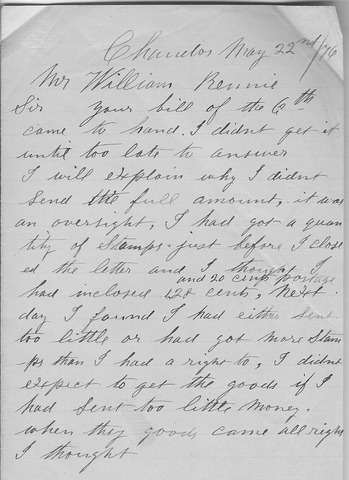 Chandos May 22nd/76
Mr William Rennie
Sir your bill of the 6th
came to hand, I didnt get it
until too late to answer
I will explain why I didnt
send the full amount, it was
an oversight, I had got a quan
tity of Stamps just before I clos
ed the letter and I thought I
and 20 cents postage
had inclosed 128 cents, Next
day I found I had either sent
too little or had got more Stam
ps than I had a right to, I didnt
expect to get the goods if I
had sent too little money.
when they goods came all right
I thought